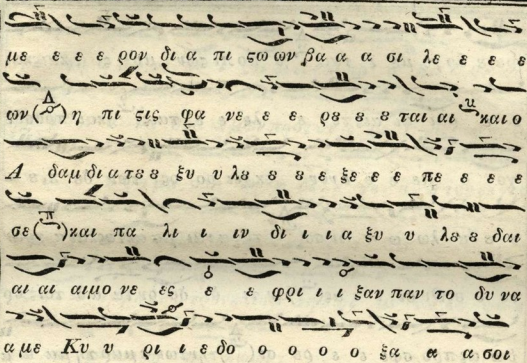 με ε ε ε ρον δι α πι ςω ων βα α α σι λε ε ε ε
ων (Δ) η πι ςις φα νε ε ε ρȣ ȣ ȣ ται αι και ο
Α δαμ δι α τȣ ȣ ξυ υ λȣ ȣ ȣ ȣ ξε ε ε πε ε ε ε
σε (π) και πα λι ι ιν δι ι ι α ξυ υ υ λȣ ȣ δαι
αι αι αιμο νε ες ε ε φρι ι ι ξαν παν το δυ να
α με Κυ υ ρι ι ε δο ο ο ο ο ξα α α σοι